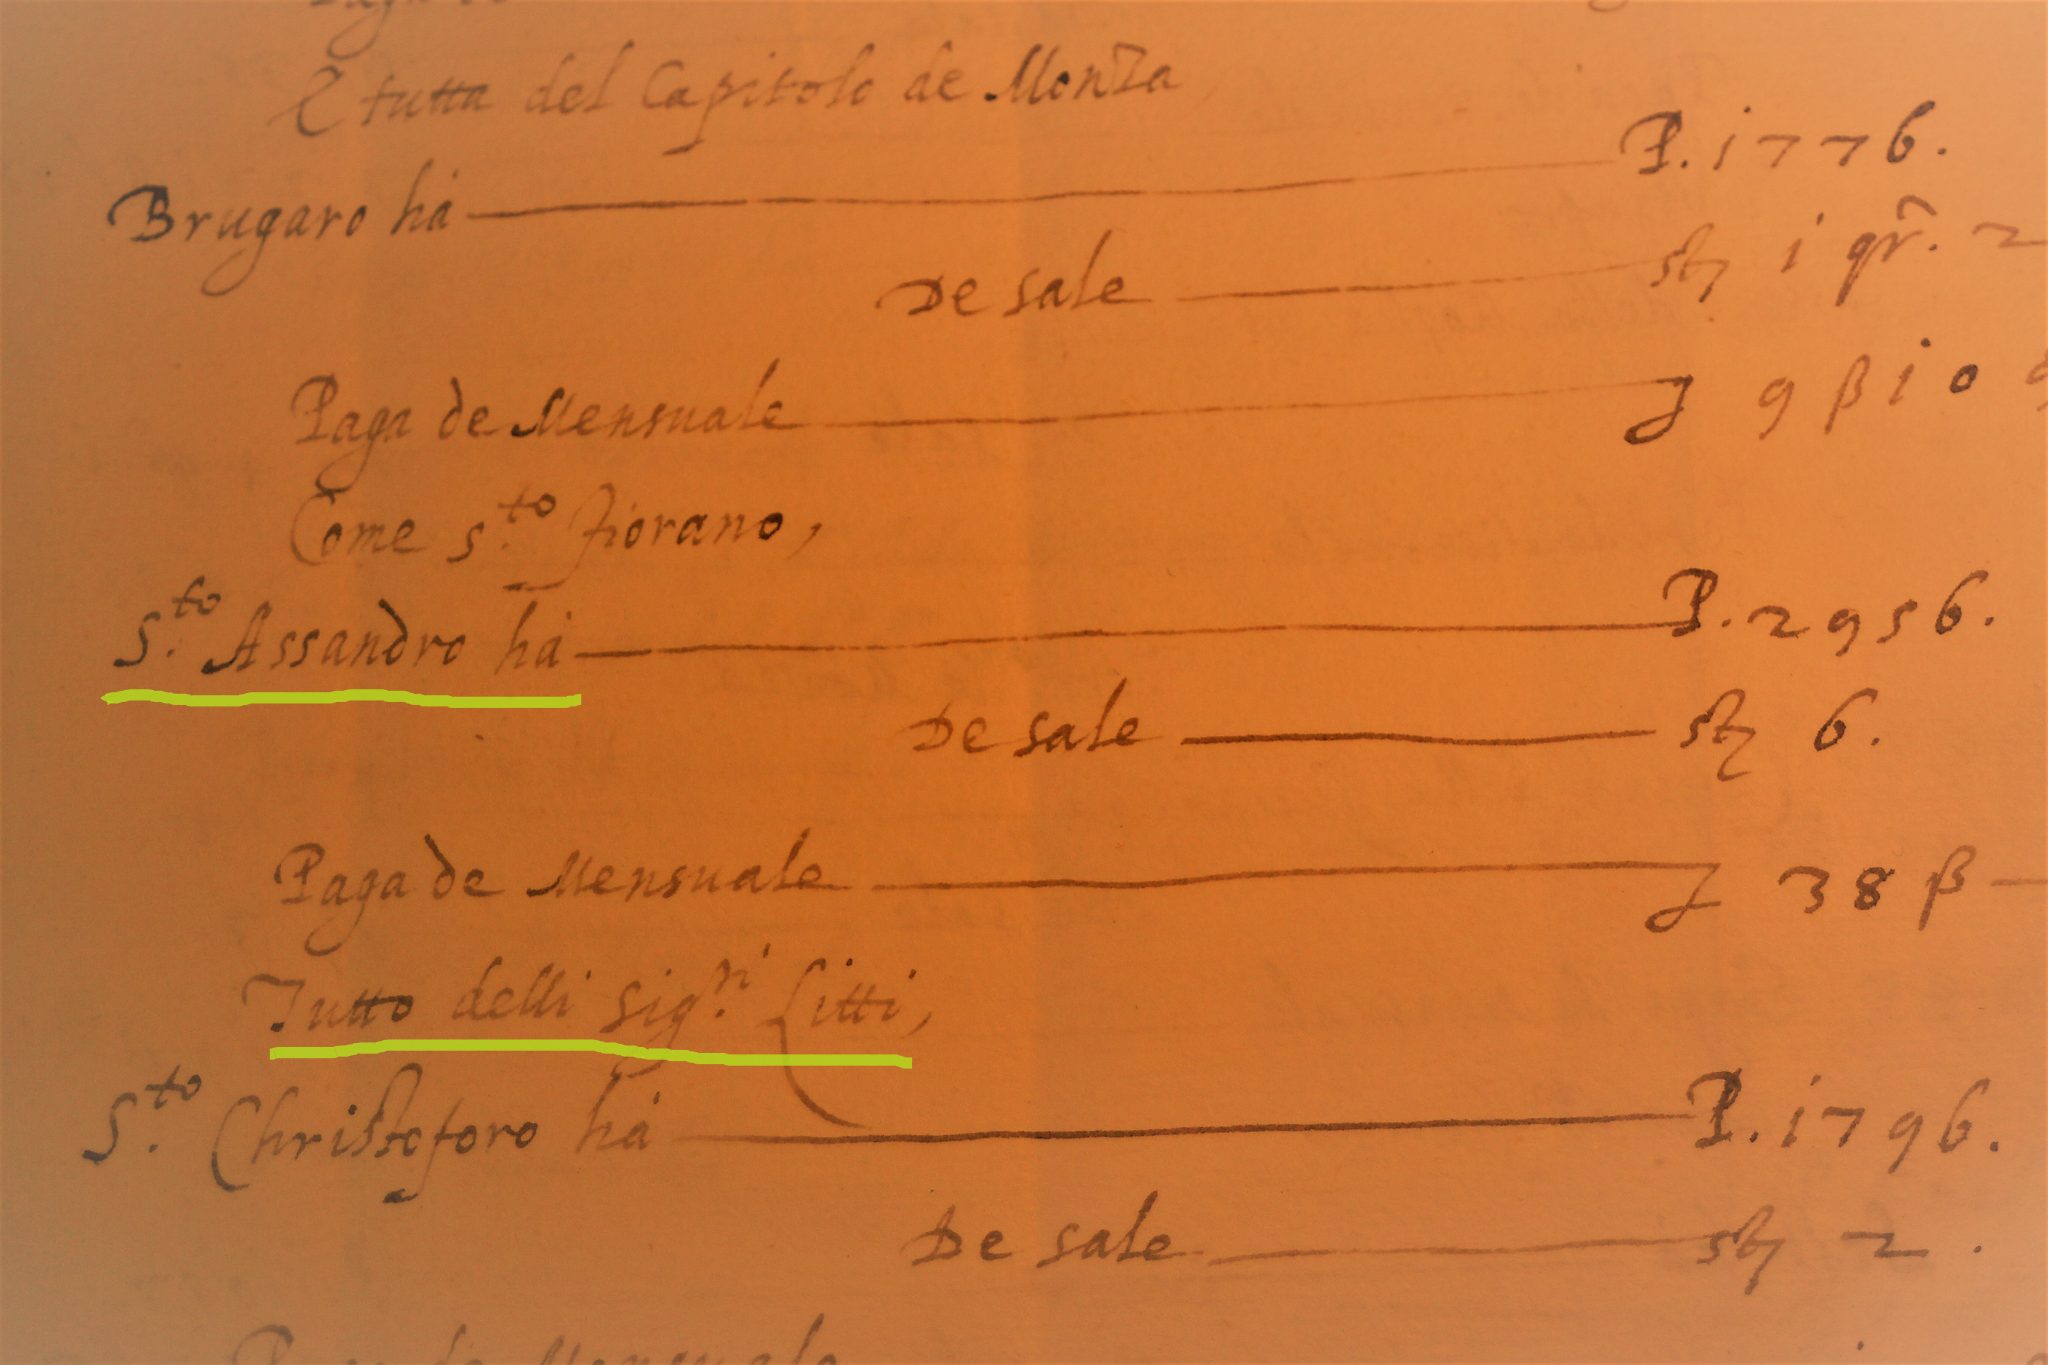 E tutta del Capitolo de Monza
Brugaro há P. 1776.
De sale stz 1 gr. 2
Paga de Mensuale £ 9 ß 10
Come S.to Fiorano,
S.to Assandro há P. 2956.
De sale stz 6.
Paga de Mensuale £ 38 ß —
Tutto delli Sig.ri Litti,
S.to Christoforo há P. 1796.
De sale stz 2.
de Mensuale